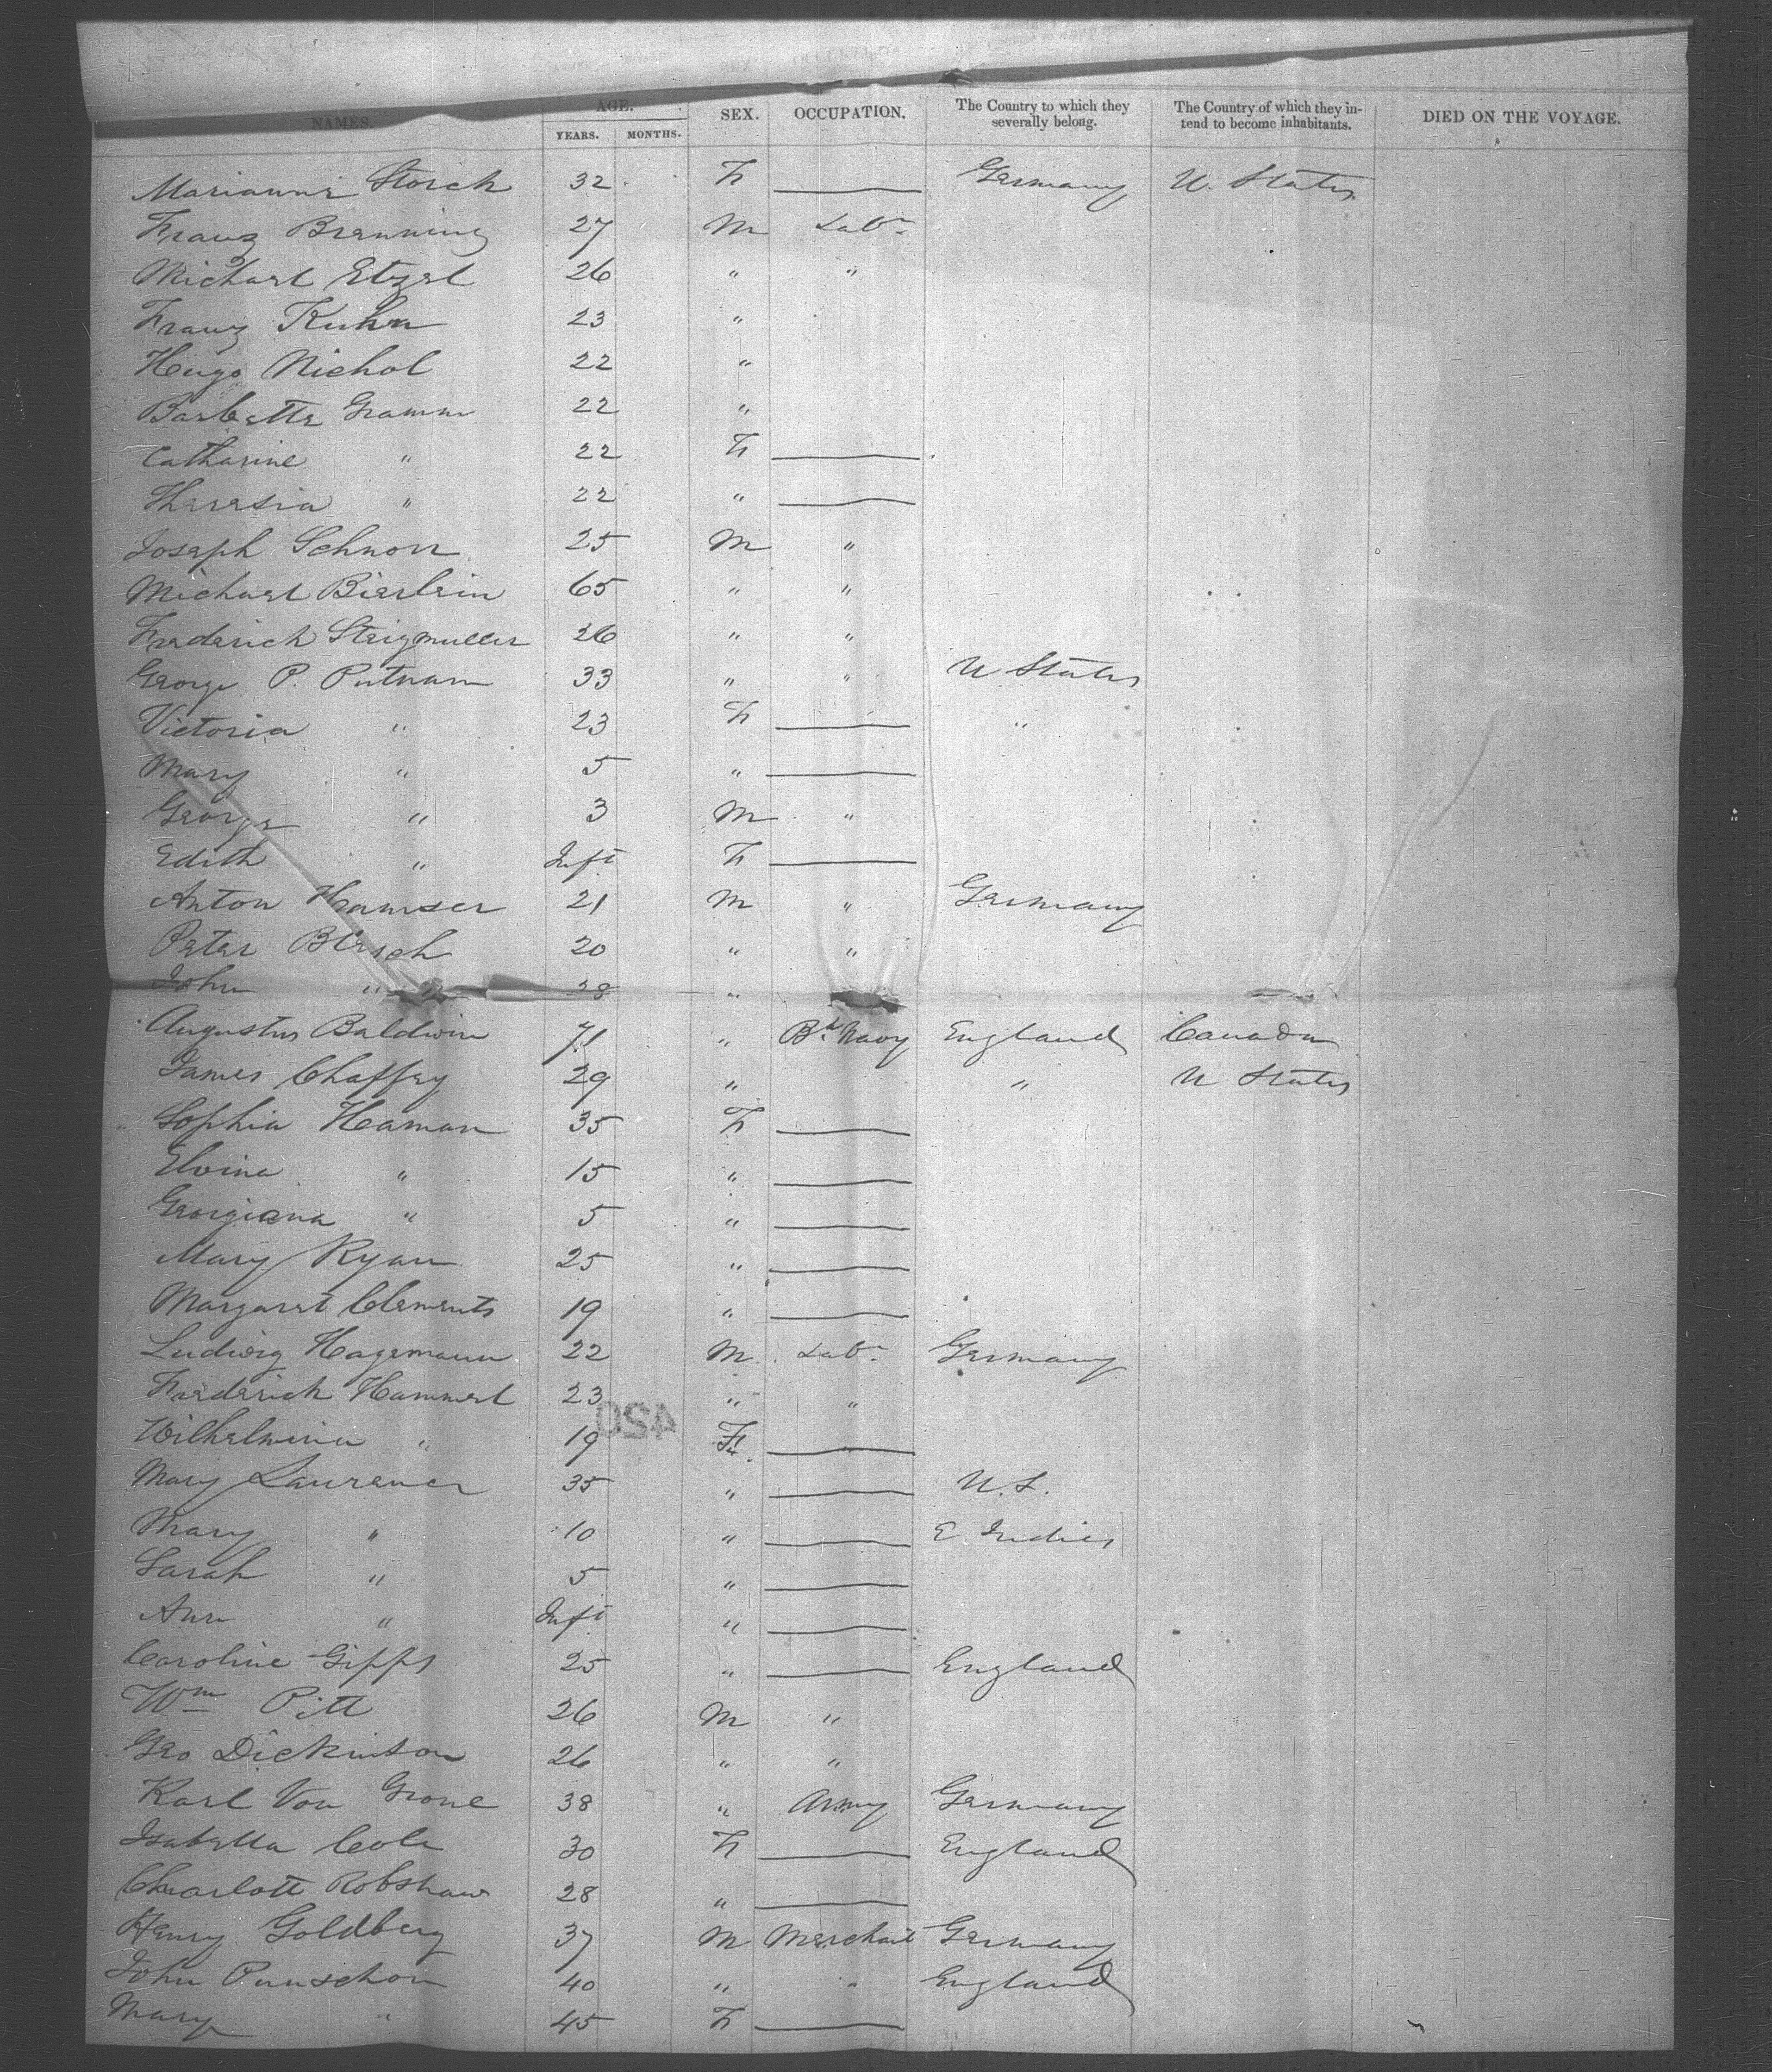 NAMES. AGE. YEARS. MONTHS. SEX. OCCUPATION. The Country to which they severally belong. The Country of which they intend to become inhabitants. DIED ON THE VOYAGE.
Marianne Storch 32 F Germany U. States
Franz Branning 27 M Labr
Michael Etzel 26 " "
Franz Kuhn 23 "
Hugo Nichol 22 "
Barbette Gramm 22 "
Catharine " 22 F
Theresia " 22 "
Joseph Schnorr 25 M "
Michael Bierlein 65 " "
Frederich Steigmuller 26 " "
George P. Putnam 33 " " U States
Victoria " 23 F "
Mary " 5 "
George " 3 M "
Edith " Inft F
Anton Hamser 21 M " Germany
Peter Blesch 20 " "
John " 28 "
Augustus Baldwin 71 " Bt Navy England Canada
James Chaffey 29 " " U States
Sophia Heaman 35 F
Elvina " 15 "
Georgiana " 5 "
Mary Ryan 25 "
Margaret Clements 19 "
Ludwig Hagemann 22 M Labr Germany
Frederick Hammel 23 " "
Wilhelmina " 19 F
Mary Laurence 35 " U.S.
Mary " 10 " E Indies
Sarah " 5 "
Ann " Inft "
Caroline Gipps 25 " England
Wm Pitt 26 M "
Geo Dickinson 26 " "
Karl Von Grone 38 " Army Germany
Isabella Cole 30 F England
Charlott Robshaw 28 "
Henry Goldberg 37 M Merchant Germany
John Punschon 40 " " England
Mary " 45 F